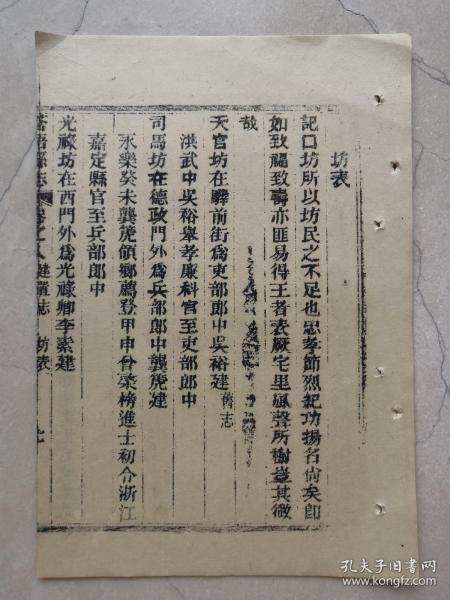 坊表
記口坊所以坊民之不足也忠孝節烈紀功揚名尙矣卽
如致福致壽亦匪易得王者表厥宅里風聲所樹豈其微
哉
天官坊在驛前街爲吏部郎中吳裕建舊志
洪武中吳裕舉孝廉科官至吏部郎中
司馬坊在德政門外爲兵部郎中龔箎建
永樂癸未龔箎領鄉薦登甲申曾棨榜進士初令浙江
嘉定縣官至兵部郎中
光祿坊在西門外爲光祿卿李素建
縣志 卷之八 建置志 坊表 七
孔夫子旧书网
www.kongfz.com